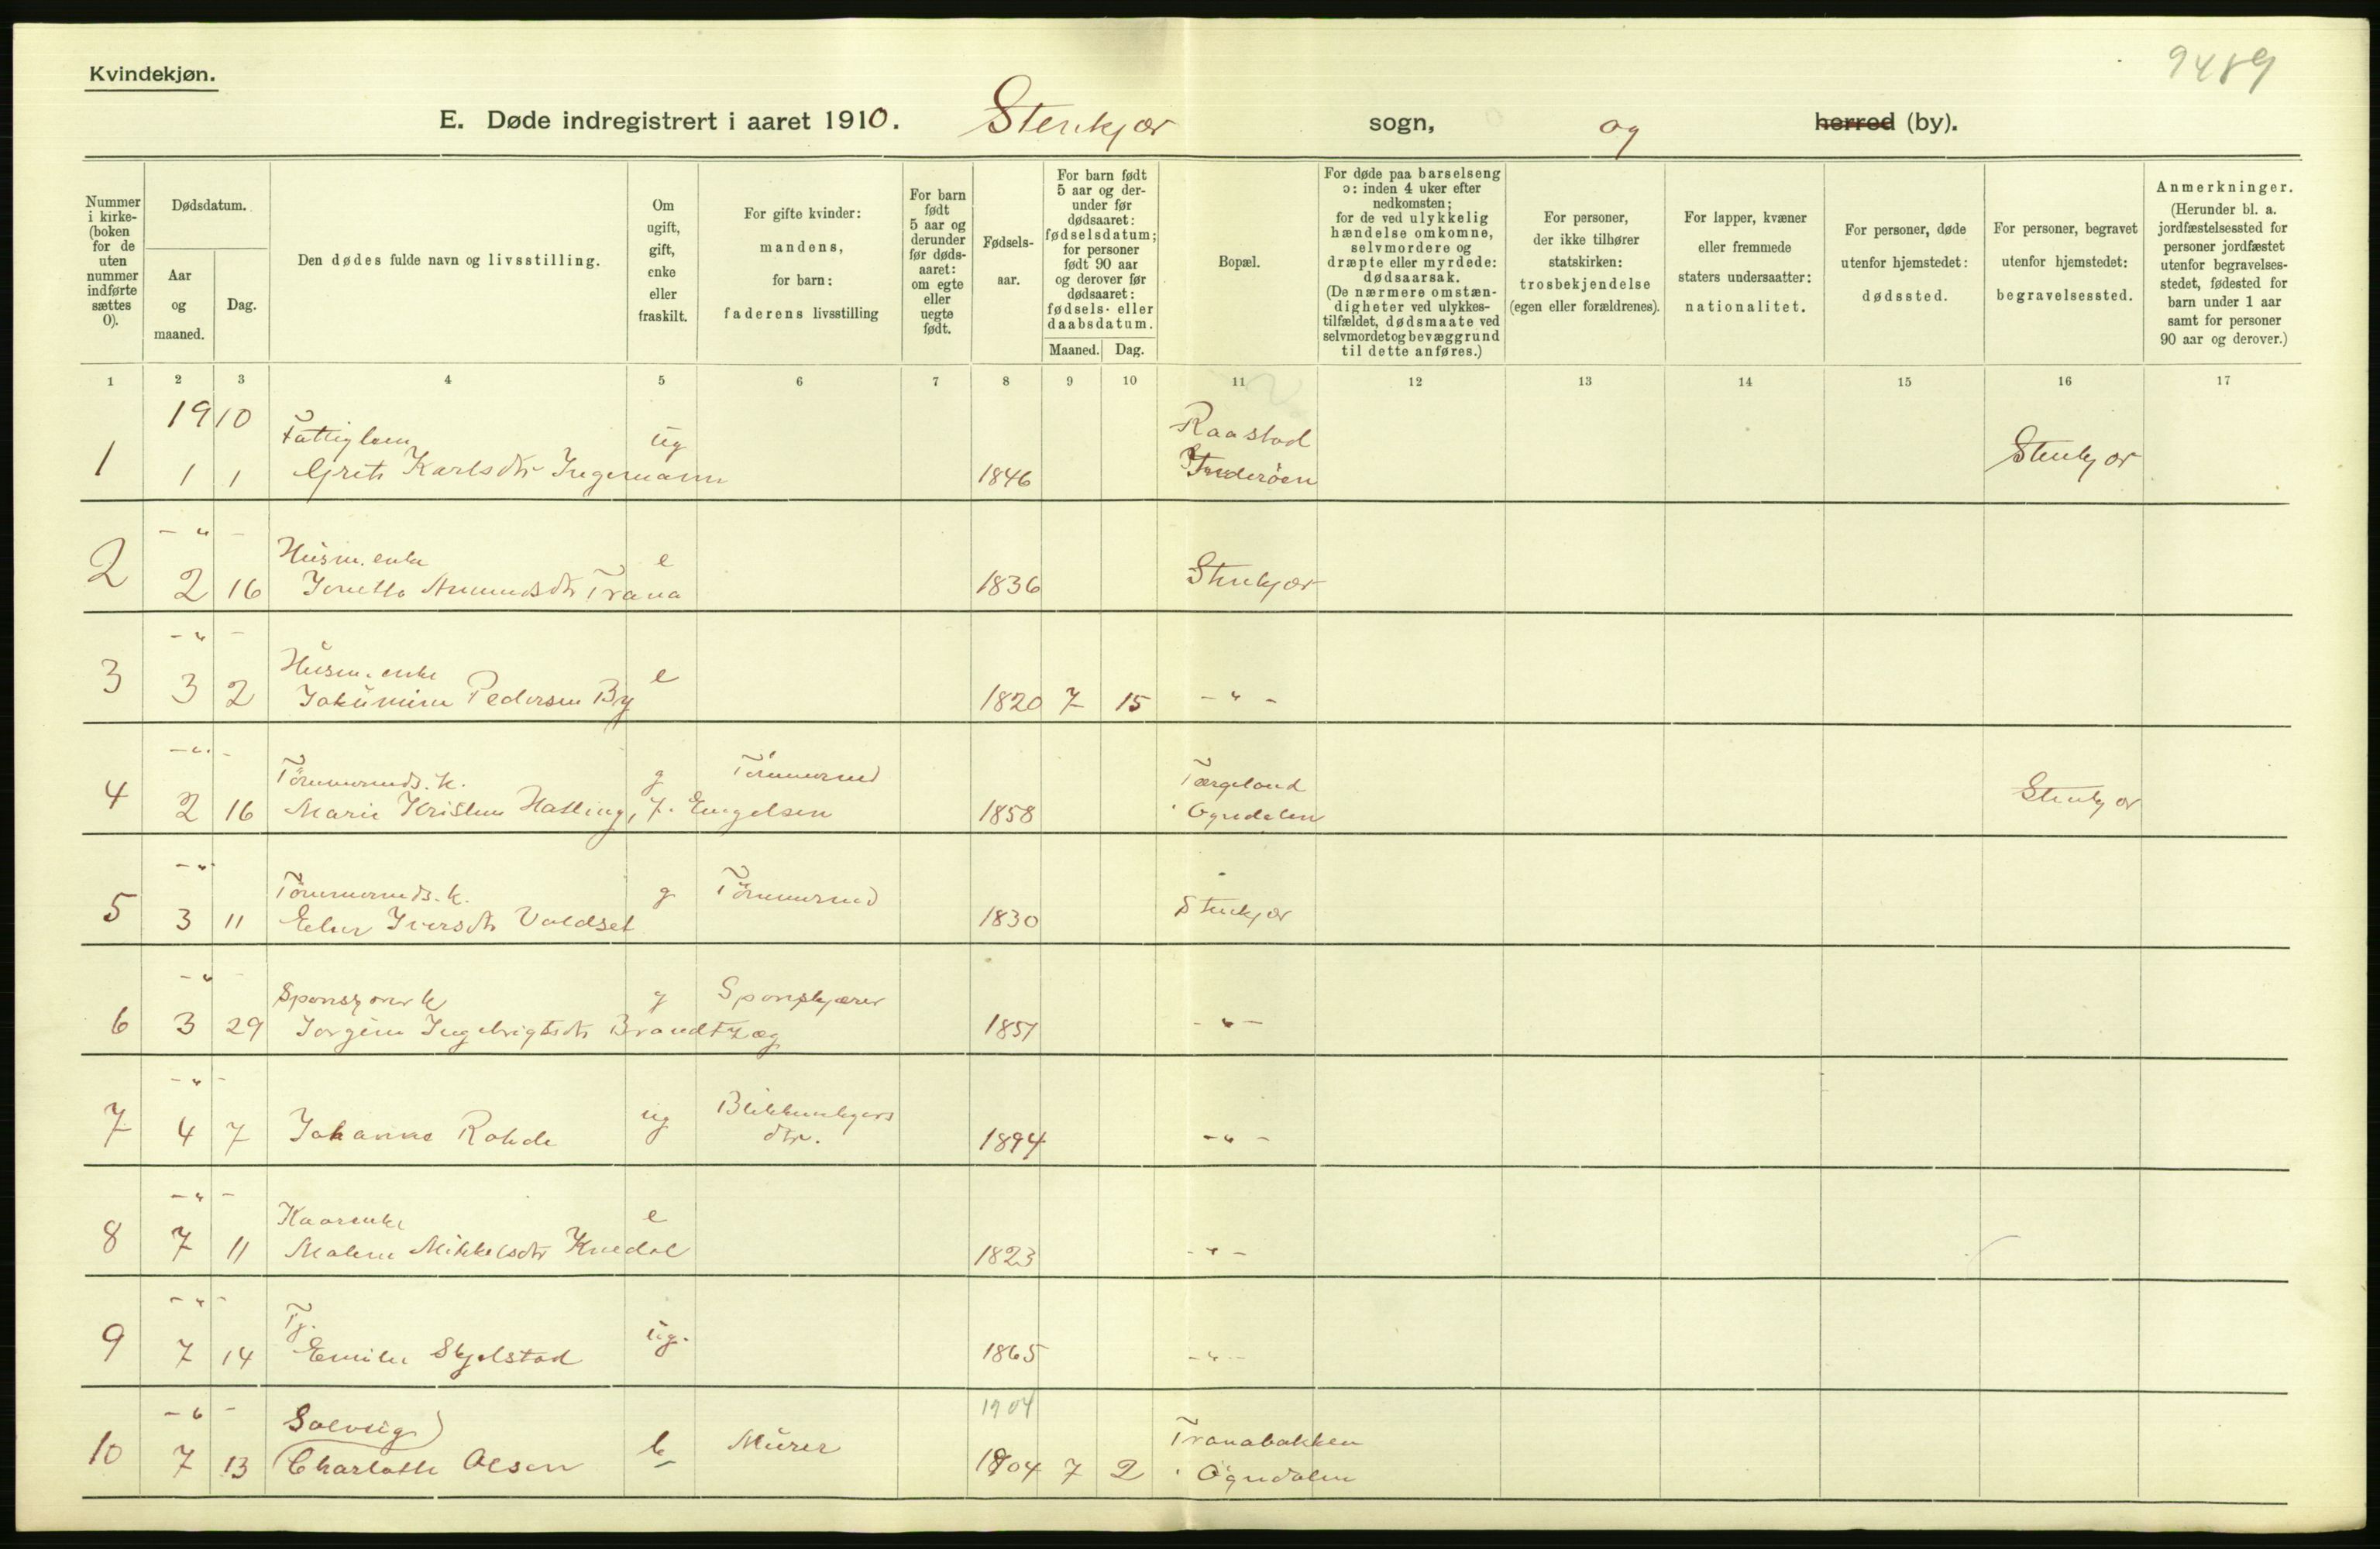 9489
Kvindekjøn.
E. Døde indregistrert i aaret 1910. Stenkjær sogn, og herred (by).
Nummer i kirke- (boken for de uten nummer indførte sættes 0).
Dødsdatum.
Aar og maaned.
Dag.
Den dødes fulde navn og livsstilling.
Om ugift, gift, enke eller fraskilt.
For gifte kvinder: mandens, for barn: faderens livsstilling
For barn født 5 aar og derunder før døds- aaret: om egte eller uegte født.
Fødsels- aar.
For barn født 5 aar og der- under før dødsaaret: fødselsdatum; for personer født 90 aar og derover før dødsaaret: fødsels- eller daabsdatum.
Maaned. Dag.
Bopæl.
For døde paa barselseng ɔ: inden 4 uker efter nedkomsten; for de ved ulykkelig hændelse omkomne, selvmordere og dræpte eller myrdede: dødsaarsak. (De nærmere omstæn- digheter ved ulykkes- tilfældet, dødsmaate ved selvmordet og bevæggrund til dette anføres.)
For personer, der ikke tilhører statskirken: trosbekjendelse (egen eller forældrenes).
For lapper, kvæner eller fremmede staters undersaatter: nationalitet.
For personer, døde utenfor hjemstedet: dødssted.
For personer, begravet utenfor hjemstedet: begravelsessted.
Anmerkninger. (Herunder bl. a. jordfæstelsessted for personer jordfæstet utenfor begravelses- stedet, fødested for barn under 1 aar samt for personer 90 aar og derover.)
1 2 3 4 5 6 7 8 9 10 11 12 13 14 15 16 17
1910 Fattiglem ug Raastad
1 1 1 Grete Karlsdtr Ingemann 1846 Inderöen Stenkjær
- " - Husm. enke e
2 2 16 Jonetta Amundsdtr Trana 1836 Stenkjær
- " - Husm. enke e
3 3 2 Jakumine Pedersen By 1820 7 15 - " -
- " - Tömmermds. k. g Tömmermd Tærgeland
4 2 16 Marie Kristine Hatling, f. Engelsen 1858 Ogndalen Stenkjær
- " Tömmermds. k. g Tömmermd
5 3 11 Elen Iversdtr Valdset 1830 Stenkjær
- " - k g Sponskjærer
6 3 29 Jorgine Ingebrigtsdtr Brandtzæg 1851 - " -
- " - ug Blikkenslagers
7 4 7 Johanne Rohde dtr. 1894 - " -
- " - Kaarenke e
8 7 11 Malene Mikkelsdtr 1823 - " -
- " - Tj. ug.
9 7 14 Emilie Skjelstad 1865 - " -
- " - Solveig) 1904 Tranabakken
10 7 13 (Charlotte Olsen Murer 1904 7 2 Ogndalen